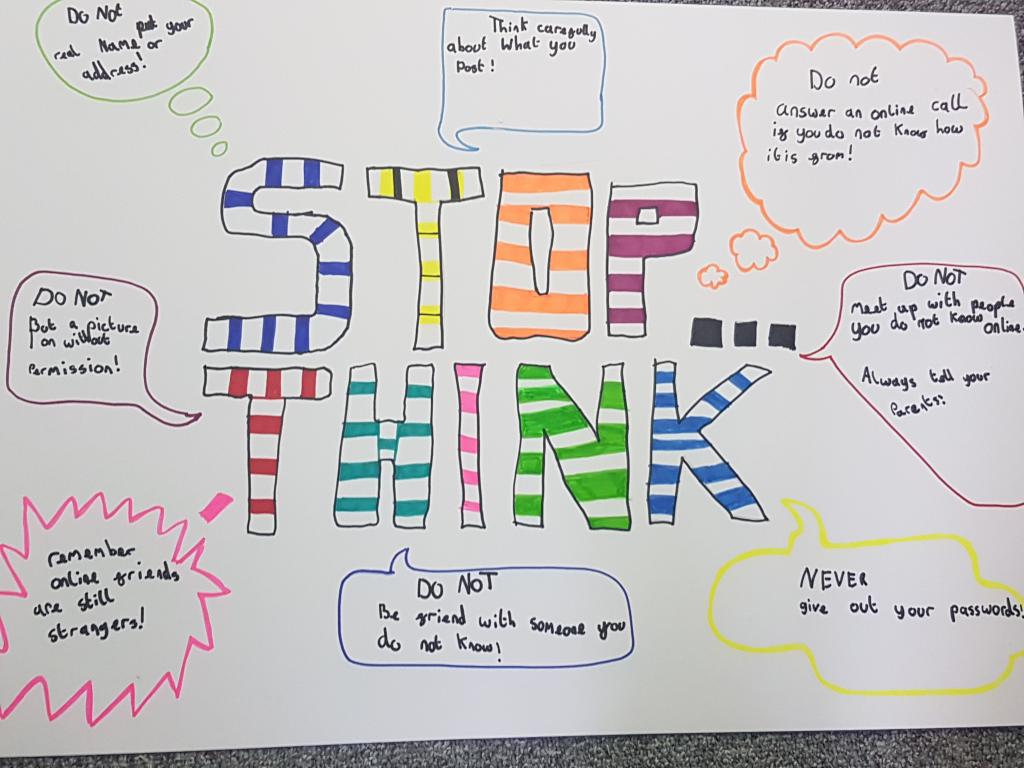 DO NOT put your
real Name or
address!
Think carefully
about what you
Post!
Do not
answer an online call
if you do not know how
it is from!
STOP...
THINK
DO NOT
But a picture
on without
permission!
DO NOT
Meet up with people
you do not know online.
Always tell your
Parents!
remember
online friends
are still
strangers!
DO NOT
Be friend with someone you
do not know!
NEVER
give out your passwords!